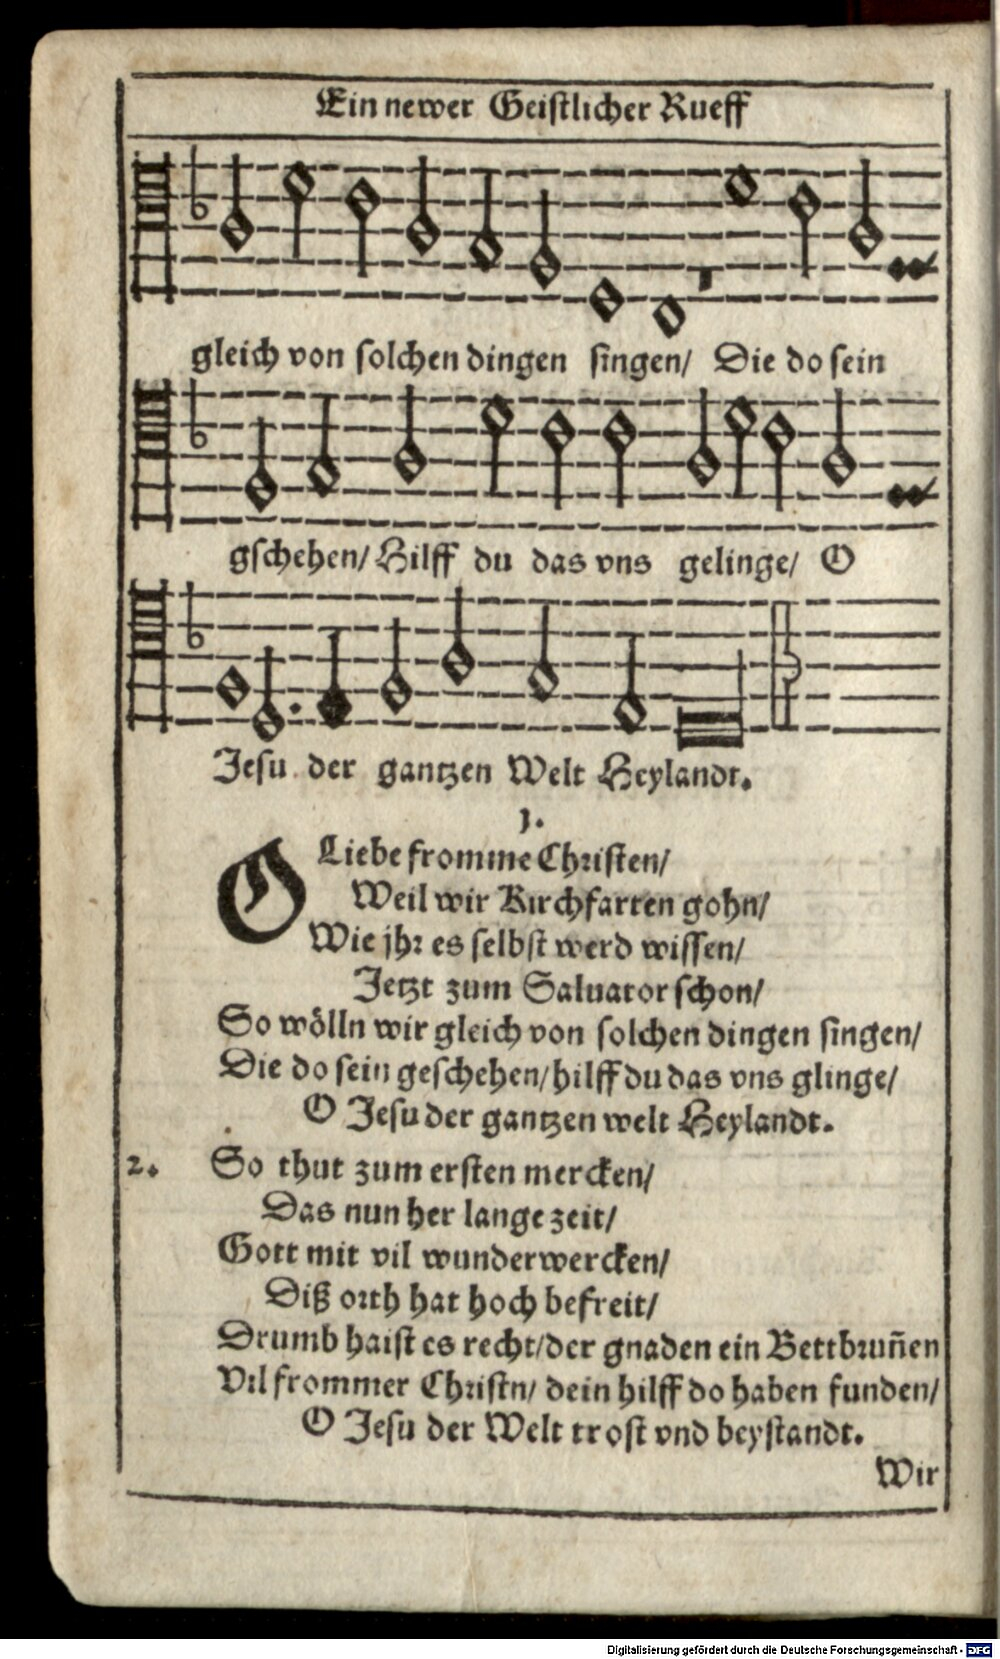 Ein newer Geistlicher Rueff
gleich von solchen dingen singen/ Die do sein
gschehen/ Hilff du das vns gelinge/ O
Jesu der gantzen Welt Heylandt.
1.
O Liebe fromme Christen/
Weil wir Kirchfarten gohn/
Wie jhr es selbst werd wissen/
Jetzt zum Saluator schon/
So wölln wir gleich von solchen dingen singen/
Die do sein geschehen/ hilff du das vns glinge/
O Jesu der gantzen welt Heylandt.
2. So thut zum ersten mercken/
Das nun her lange zeit/
Gott mit vil wunderwercken/
Diß orth hat hoch befreit/
Drumb haist es recht/ der gnaden ein Bettbrun̄en
Vil frommer Christn/ dein hilff do haben funden/
O Jesu der Welt trost vnd beystandt.
Wir
Digitalisierung gefördert durch die Deutsche Forschungsgemeinschaft - DFG